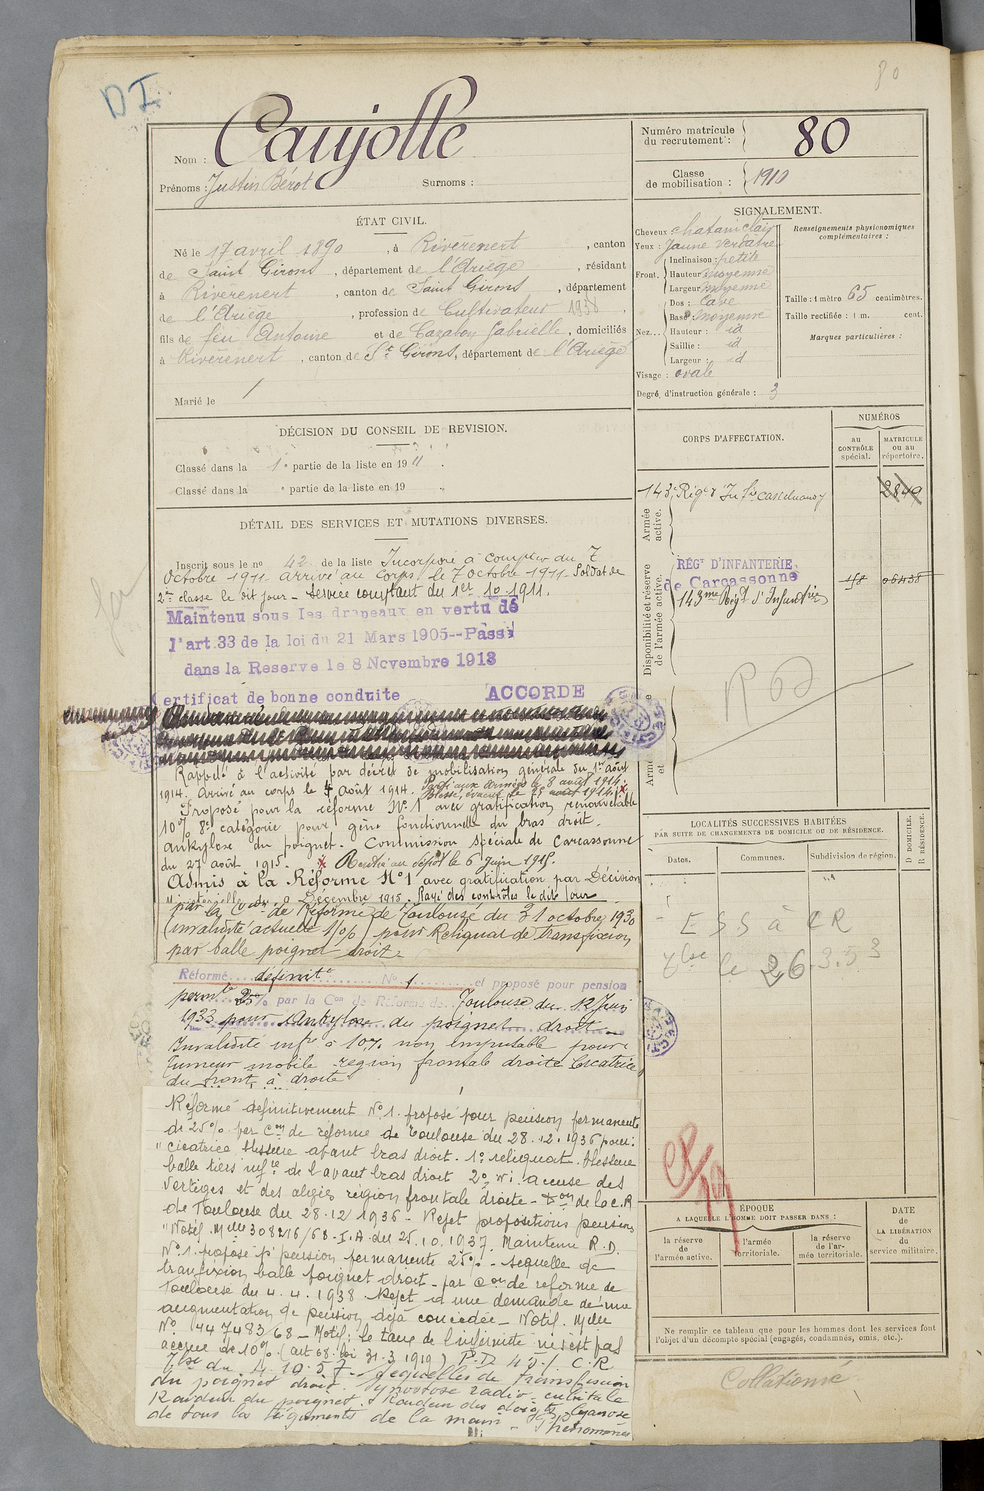 80
D I
Nom : Caujolle
Prénoms : Justin Bérot Surnoms :
Numéro matricule du recrutement : 80
Classe de mobilisation : 1910
ÉTAT CIVIL.
Né le 17 avril 1890, à Rivèrenert, canton
de Saint Girons, département de l'Ariège, résidant
à Rivèrenert, canton de Saint Girons, département
de l'Ariège, profession de Cultivateur 1938,
fils de feu Antoine et de Cazalon Gabrielle, domiciliés
à Rivèrenert, canton de St Girons, département de l'Ariège
Marié le
SIGNALEMENT.
Cheveux chatain clair
Yeux : Jaune verdatre
Front, Inclinaison : petite
Hauteur : moyenne
Largeur : moyenne
Nez... Dos : Cave
Base : moyenne
Hauteur : id
Saillie : id
Largeur : id
Visage : ovale
Degré d'instruction générale : 3
Renseignements physionomiques complémentaires :
Taille : 1 mètre 65 centimètres.
Taille rectifiée : 1 m. cent.
Marques particulières :
DÉCISION DU CONSEIL DE REVISION.
Classé dans la 1e partie de la liste en 1911.
Classé dans la e partie de la liste en 19
DÉTAIL DES SERVICES ET MUTATIONS DIVERSES.
Inscrit sous le no 42 de la liste Incorporé à compter du 7
octobre 1911. arrivé au corps le 7 octobre 1911. Soldat de
2e classe le dit jour - Service comptant du 1er 10. 1911.
Maintenu sous les drapeaux en vertu de
l'art.33 de la loi du 21 Mars 1905--Passé
dans la Reserve le 8 Novembre 1913
ertificat de bonne conduite ACCORDE
Rappelé à l'activité par décret de mobilisation générale du 1er août
1914. Arrivé au corps le 4 août 1914. Parti aux armées le 8 août 1914.
Blessé, évacué le août 1914. x
Proposé pour la réforme No 1 avec gratification renouvelable
10% 8e catégorie pour gêne fonctionnelle du bras droit.
ankylose du poignet. Commission spéciale de Carcassonne
du 27 août 1915. x Rentré au dépôt le 6 Juin 1915.
Admis à la Réforme No 1 avec gratification par Décision
Décembre 1915. Rayé des contrôles le dit jour
par la Con de Réforme de Toulouse du 31 octobre 1930
(invalidité actuelle 10%) pour Reliquat de transfixion
par balle poignet droit.
Réformé définitt No 1 et proposé pour pension
permte 25% par la Con de Réforme de Toulouse du 12 Juin
1933 pour Ankylose du poignet droit
Invalidité infre à 10% non imputable pour
tumeur mobile région frontale droite Cicatrice
du front à droite
Réformé définitivement No 1. proposé pour pension permanente
de 25% par Con de réforme de Toulouse du 28.12.1936 pour :
"cicatrice blessure avant bras droit. 1o reliquat blessure
balle tiers infre de l'avant bras droit 2o accuse des
vertiges et des algies région frontale droite - Don de la C.R
de Toulouse du 28.12.1936 - Rejet propositions pension
"Notif. Mlle 308216/68-I.A du 25.10.1937. Maintenu R.D.
No 1. proposé pr pension permanente 25% - séquelle de
transfixion balle poignet droit - par Con de réforme de
Toulouse du 4.4.1938 Rejet d'une demande de
augmentation de pension déjà concédée - Notif. Mlle
No 447483 68 - Motif : le taux de l'infirmité n'est pas
accrue de 10% (art 68. loi 31.3.1919) P.D 45% C.R
Tlse du 4.10.57 - Séquelles de transfixion
du poignet droit. Synostose radio-cubitale
Raideur du poignet. Raideur des doigts cyanose
de tous les téguments de la main -
CORPS D'AFFECTATION.
NUMÉROS
AU CONTRÔLE spécial.
MATRICULE ou au répertoire.
Armée active.
143e Régt d'Infie Castelnaudary 2840
Disponibilité et réserve de l'armée active.
RÉGT D'INFANTERIE
de Carcassonne
143me Régt d'Infanterie
R D
LOCALITÉS SUCCESSIVES HABITÉES
PAR SUITE DE CHANGEMENTS DE DOMICILE OU DE RÉSIDENCE.
D. DOMICILE.
R. RÉSIDENCE.
Dates. Communes. Subdivision de région.
E S S à C R
Tlse le 26.3.53
ÉPOQUE
A LAQUELLE L'HOMME DOIT PASSER DANS :
la réserve de l'armée active.
l'armée territoriale.
la réserve de l'armée territoriale.
DATE de LA LIBÉRATION du service militaire.
Ne remplir ce tableau que pour les hommes dont les services font
l'objet d'un décompte spécial (engagés, condamnés, omis, etc.).
Collationné